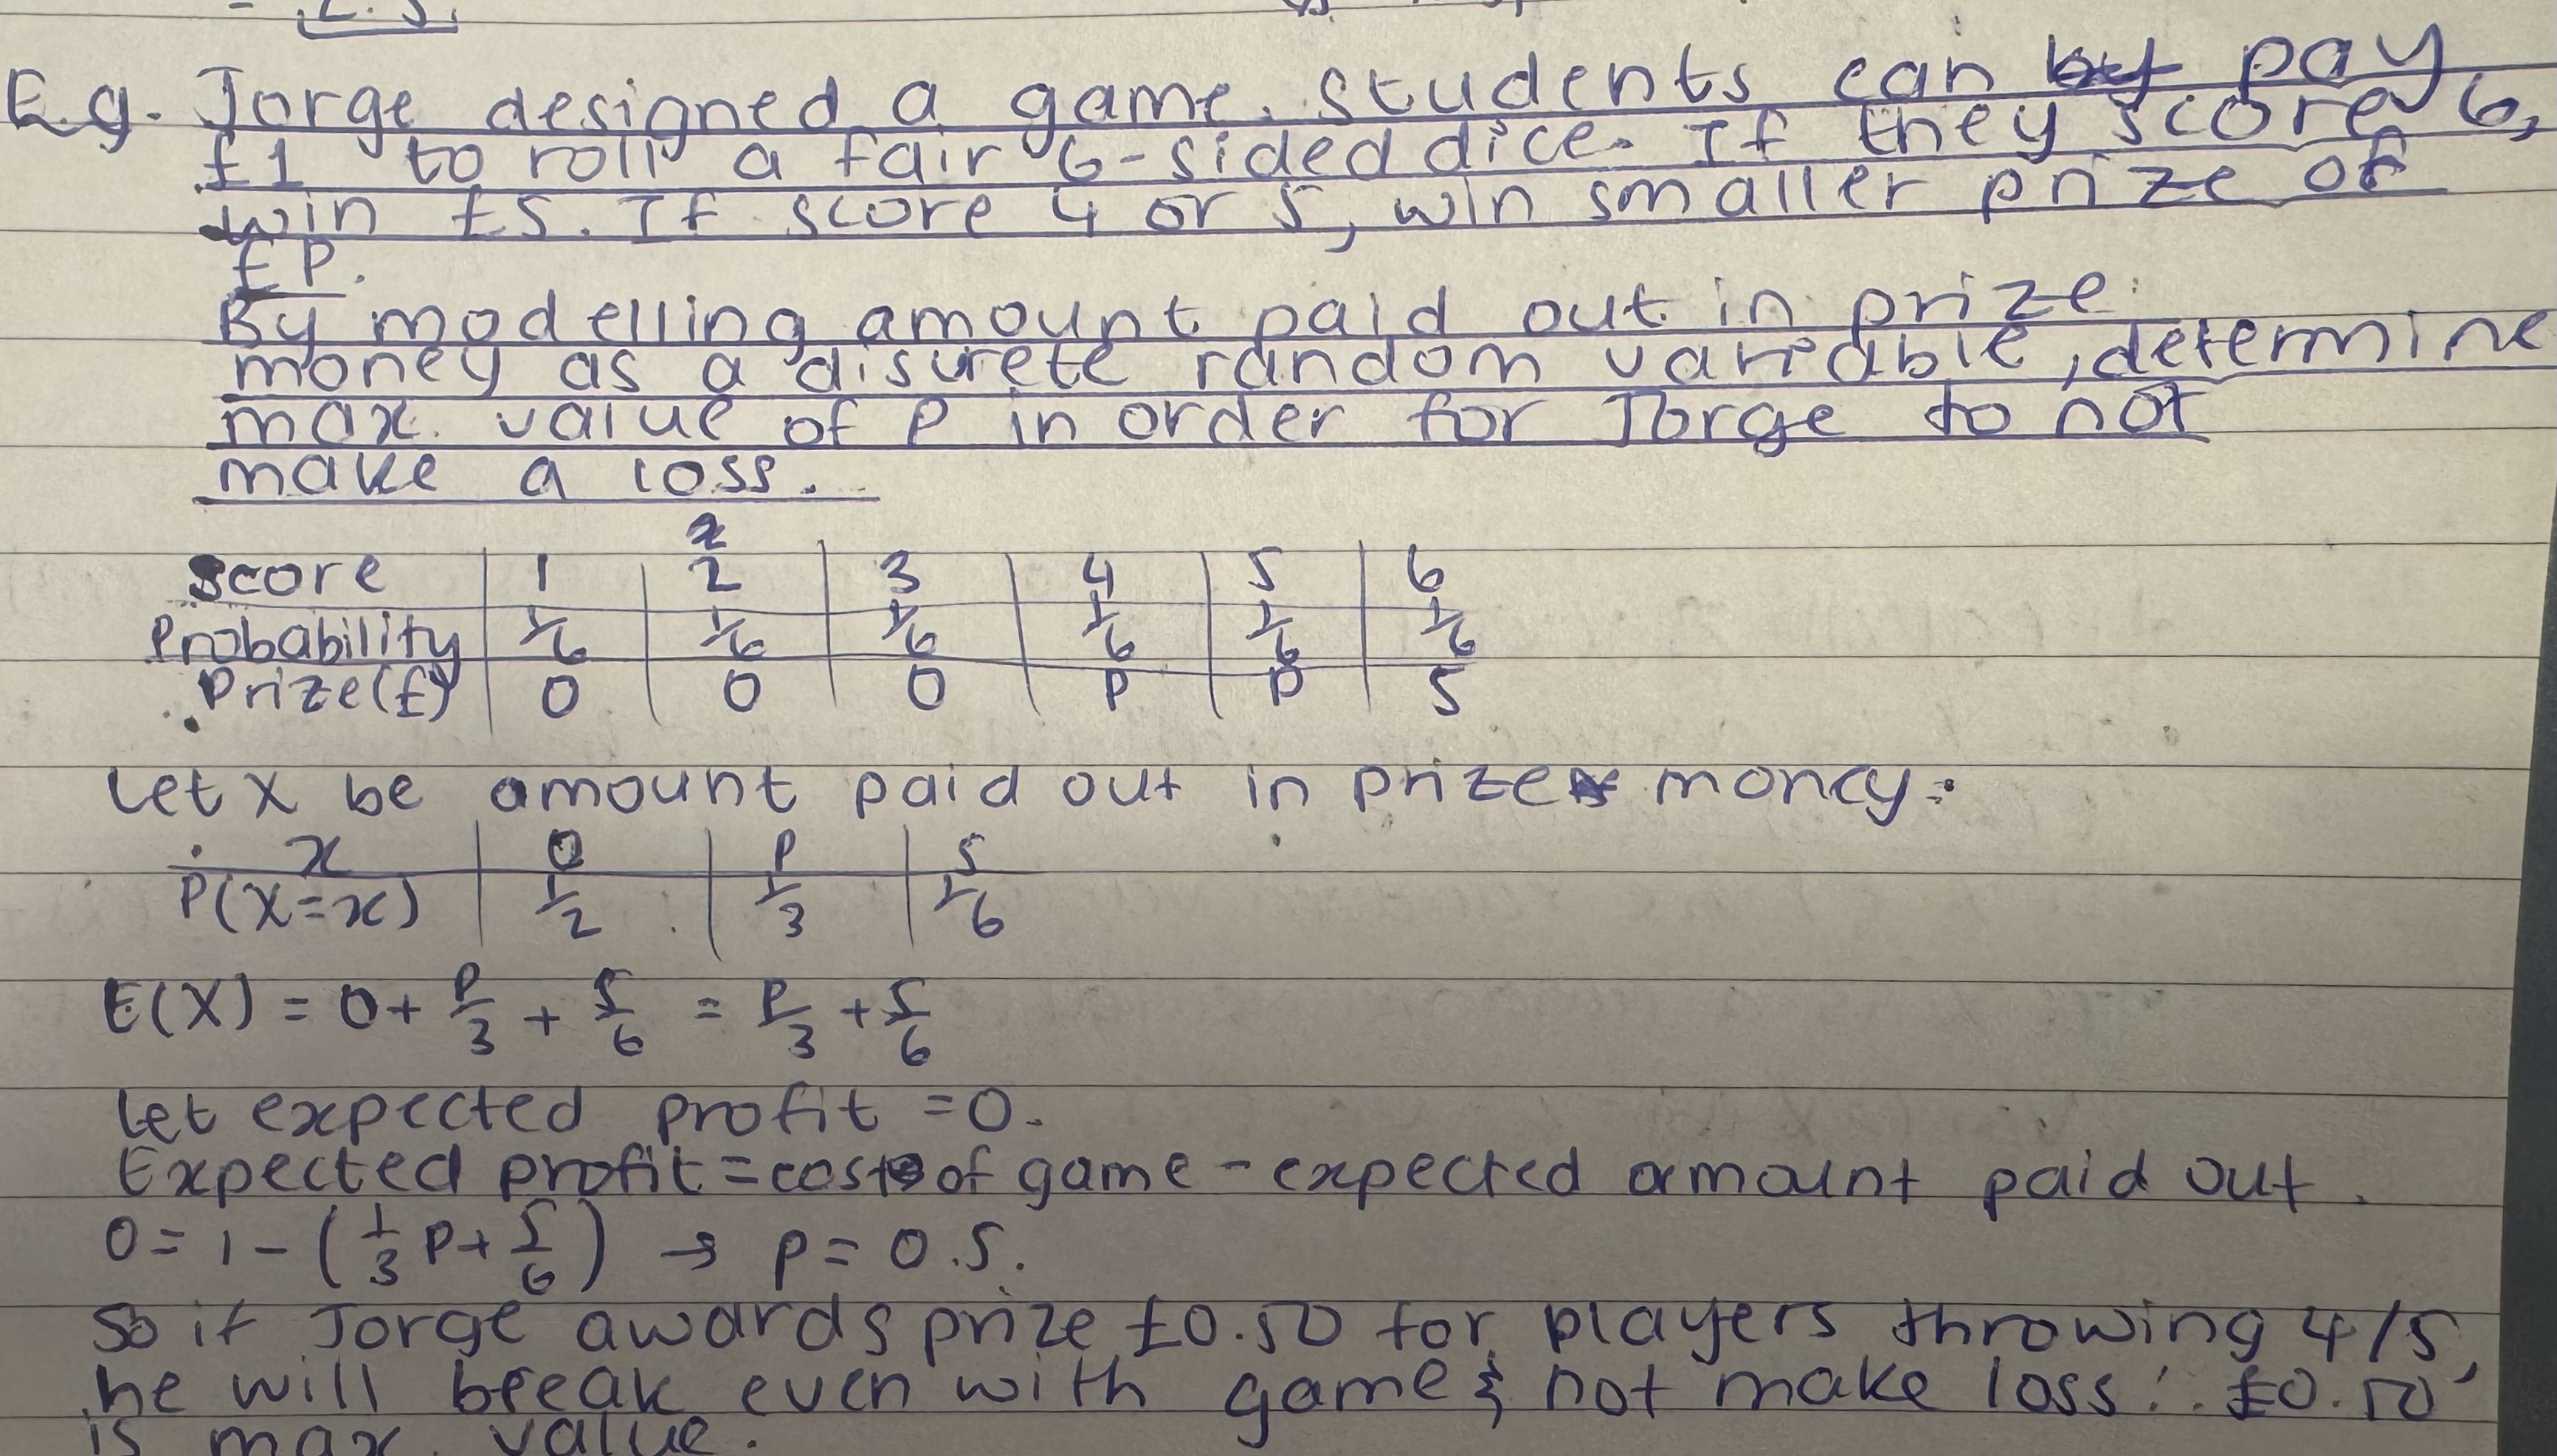 = 2.5.
E.g. Jorge designed a game. Students can pay
£1 to roll a fair 6-sided dice. If they score 6,
win £5. If score 4 or 5, win smaller prize of
£P.
By modelling amount paid out in prize
money as a disurete random variable, determine
max. value of P in order for Jorge to not
make a loss.
x
Score | 1 | 2 | 3 | 4 | 5 | 6
Probability | 1/6 | 1/6 | 1/6 | 1/6 | 1/6 | 1/6
Prize(£) | 0 | 0 | 0 | P | P | 5
Let X be amount paid out in prize money:
x | 0 | P | 5
P(X=x) | 1/2 | 1/3 | 1/6
E(X) = 0 + P/3 + 5/6 = P/3 + 5/6
Let expected profit = 0.
Expected profit = cost of game - expected amount paid out.
0 = 1 - (1/3 P + 5/6) → P = 0.5.
So if Jorge awards prize £0.50 for players throwing 4/5,
he will break even with game & not make loss ∴ £0.50
is max. value.